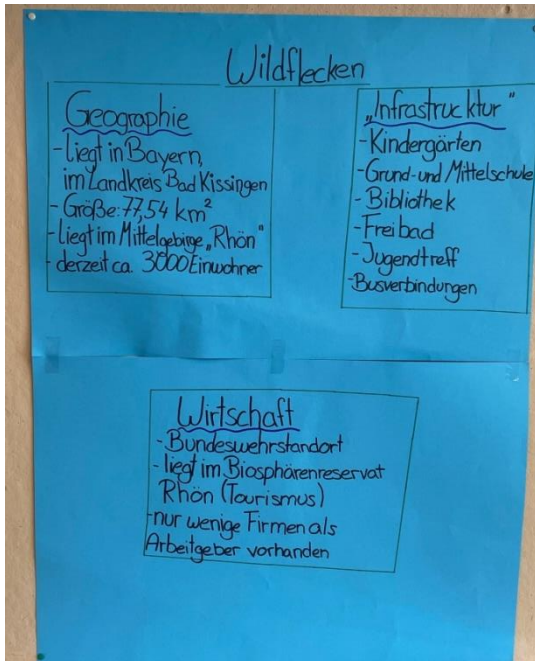 Wildflecken
Geographie
- liegt in Bayern,
im Landkreis Bad Kissingen
- Größe: 77,54 km²
- liegt im Mittelgebirge „Rhön"
- derzeit ca. 3000 Einwohner
„Infrastrucktur"
- Kindergärten
- Grund- und Mittelschule
- Bibliothek
- Freibad
- Jugendtreff
- Busverbindungen
Wirtschaft
- Bundeswehrstandort
- liegt im Biosphärenreservat
Rhön (Tourismus)
- nur wenige Firmen als
Arbeitgeber vorhanden